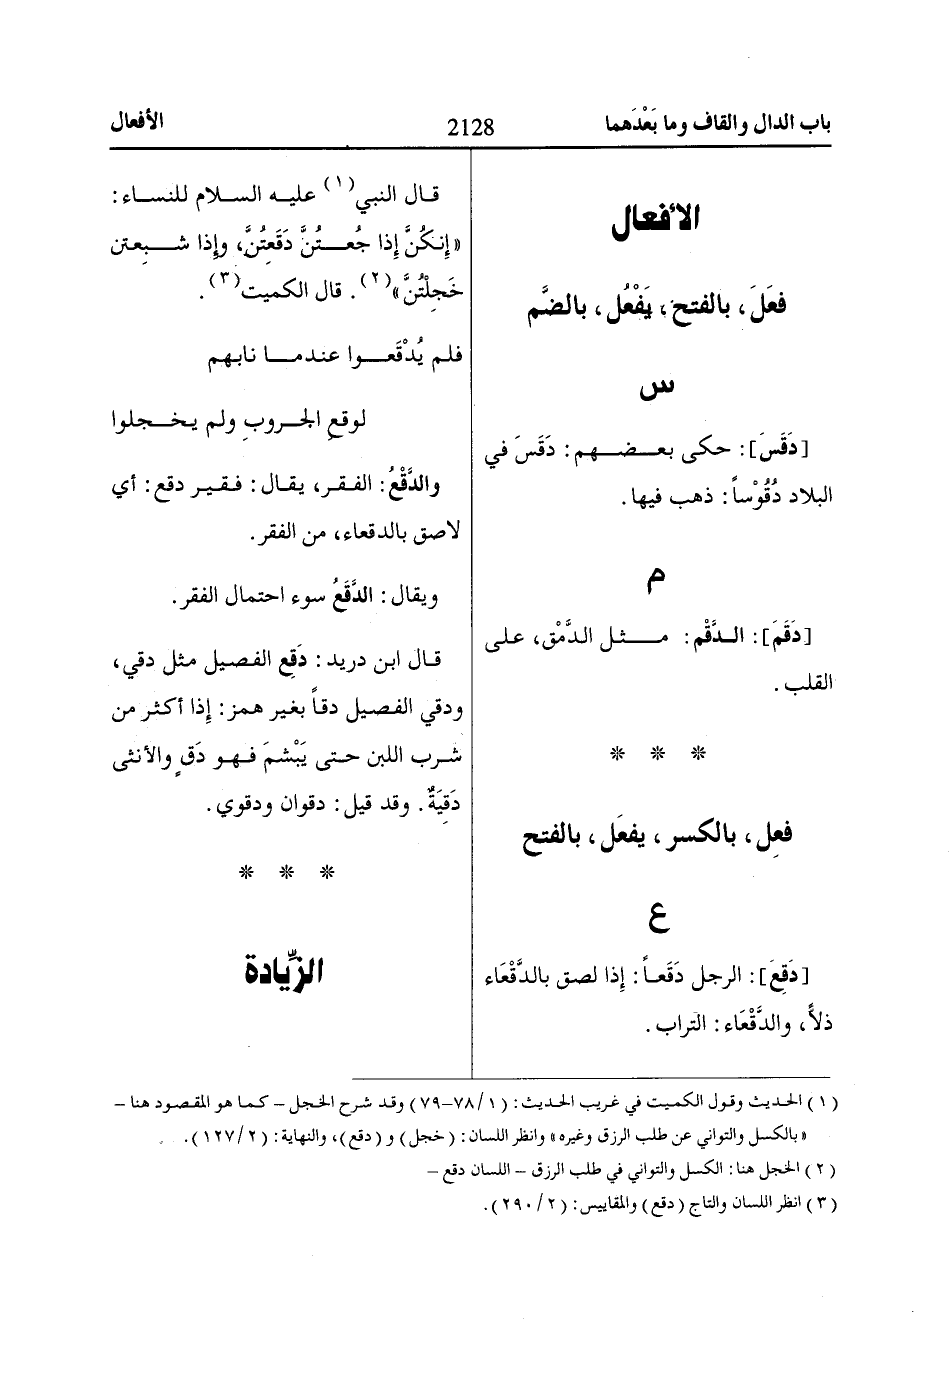 باب الدال والقاف وما بَعْدَهما
2128
الأفعال
الأفعال
فعَلَ، بالفتح، يَفْعُل، بالضَّم
س
[دَقَسَ]: حكى بعضهم: دَقَسَ في
البلاد دُقُوْساً: ذهب فيها.
م
[دَقَمَ]: الدَّقْم: مثل الدَّمْق، على
القلب.
* * *
فعِل، بالكسر، يفعَل، بالفتح
ع
[دَقِعَ]: الرجل دَقَعاً: إذا لصق بالدَّقْعَاء
ذلاً، والدَّقْعَاء: التراب.
قال النبي(١) عليه السلام للنساء:
«إِنكُنَّ إِذا جُعتُنَّ دَقَعِتُنَّ، وإِذا شبِعتن
خَجِلْتُنَّ»(٢). قال الكميت(٣).
فلم يُدْقَعوا عندما نابهم
لوقعِ الحروبِ ولم يخجلوا
والدَّقْعُ: الفقر، يقال: فقير دقع: أي
لاصق بالدقعاء، من الفقر.
ويقال: الدَّقَعُ سوء احتمال الفقر.
قال ابن دريد: دَقِع الفصيل مثل دقي،
ودقي الفصيل دقاً بغير همز: إِذا أكثر من
شرب اللبن حتى يَبْشمَ فهو دَقٍ والأنثى
دَقِيَةٌ. وقد قيل: دقوان ودقوي.
* * *
الزِّيادة
(١) الحديث وقول الكميت في غريب الحديث: (١/٧٨–٧٩) وقد شرح الخجل – كما هو المقصود هنا –
«بالكسل والتواني عن طلب الرزق وغيره» وانظر اللسان: (خجل) و (دقع)، والنهاية: (٢/١٢٧).
(٢) الخجل هنا: الكسل والتواني في طلب الرزق – اللسان دقع –
(٣) انظر اللسان والتاج (دقع) والمقاييس: (٢/٢٩٠).